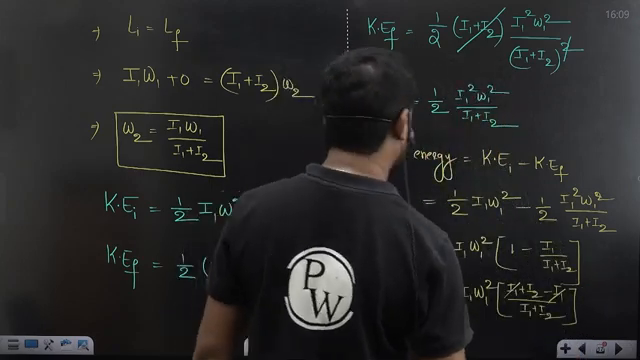 16:09
⇒ L₁ = L_f
⇒ I₁ω₁ + 0 = (I₁+I₂) ω₂
⇒ ω₂ = I₁ω₁ / (I₁+I₂)
K.E_i = 1/2 I₁ω
K.E_f = 1/2 (
K.E_f = 1/2 (I₁+I₂) I₁²ω₁² / (I₁+I₂)²
= 1/2 I₁²ω₁² / (I₁+I₂)
energy = K.E_i − K.E_f
= 1/2 I₁ω₁² − 1/2 I₁²ω₁² / (I₁+I₂)
I₁ω₁² [1 − I₁ / (I₁+I₂)]
I₁ω₁² [(I₁+I₂−I₁) / (I₁+I₂)]
PW